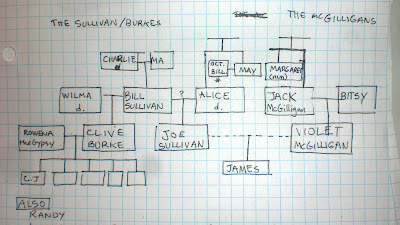 THE SULLIVAN/BURKES
THE McGILLIGANS
CHARLIE
d
MA
OCT.
BILL
*
MAY
MARGARET
(nun)
WILMA
d.
BILL
SULLIVAN
?
ALICE
d.
JACK
McGilligan
BITSY
ROWENA
CLIVE
BURKE
JOE
SULLIVAN
VIOLET
McGILLIGAN
JAMES
C.J
ALSO
RANDY